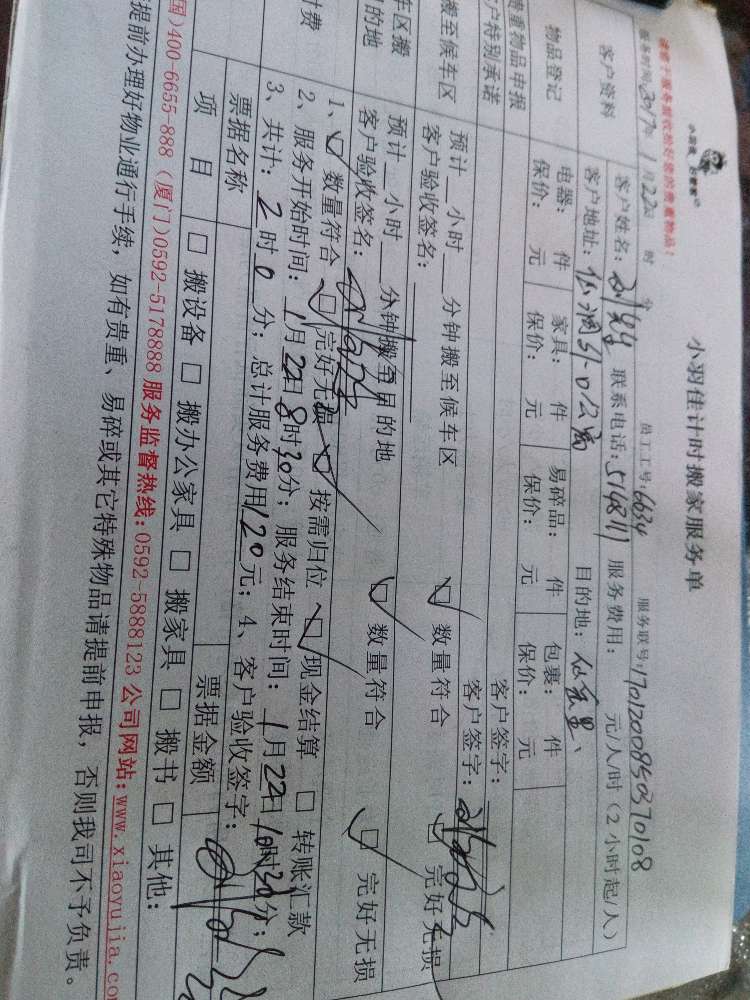 小羽佳 好管家
小羽佳计时搬家服务单
请给于服务前收拾好您的贵重物品！
员工工号：6634 服务联号：17012008503 70108
服务时间：2017年1月22日 时 分
客户资料 客户姓名： 联系电话：5748311 服务费用： 元/人/时（2小时起/人）
客户地址： 公寓 目的地：
物品登记 电器： 件 家具： 件 易碎品： 件 包裹： 件
保价： 元 保价： 元 保价： 元 保价： 元
贵重物品申报 客户签字：
客户特别承诺 客户签字：
搬至候车区 预计__小时__分钟搬至候车区 □ 数量符合 □ 完好无损
客户验收签名：
车区搬 预计__小时__分钟搬至目的地 □ 数量符合 □ 完好无损
目的地 客户验收签名：
1、□ 数量符合 □ 完好无损 □ 按需归位 □ 现金结算 □ 转账汇款
时费 2、服务开始时间：1月22日8时30分；服务结束时间：1月22日10时30分；
3、共计：2时0分；总计服务费用120元；4、客户验收签字：
票据名称 票据金额
项 目 □ 搬设备 □ 搬办公家具 □ 搬家具 □ 搬书 □ 其他：
国)400-6655-888（厦门)0592-5178888 服务监督热线：0592-5888123 公司网站：www.xiaoyujia.co
提前办理好物业通行手续，如有贵重、易碎或其它特殊物品请提前申报，否则我司不予负责。